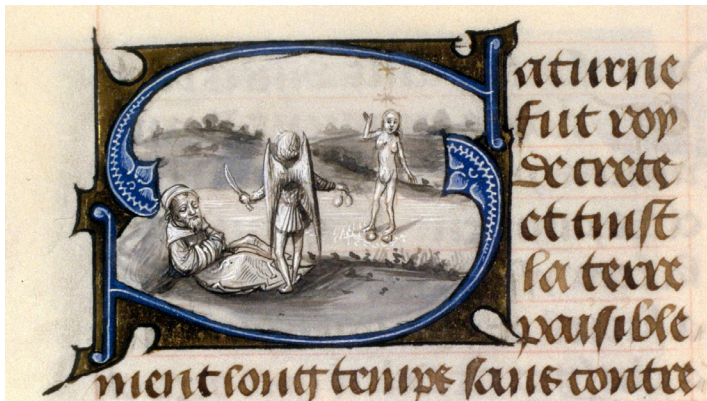 Saturne
fut roy
de crete
et tinst
la terre
paisible
ment long temps sans contre